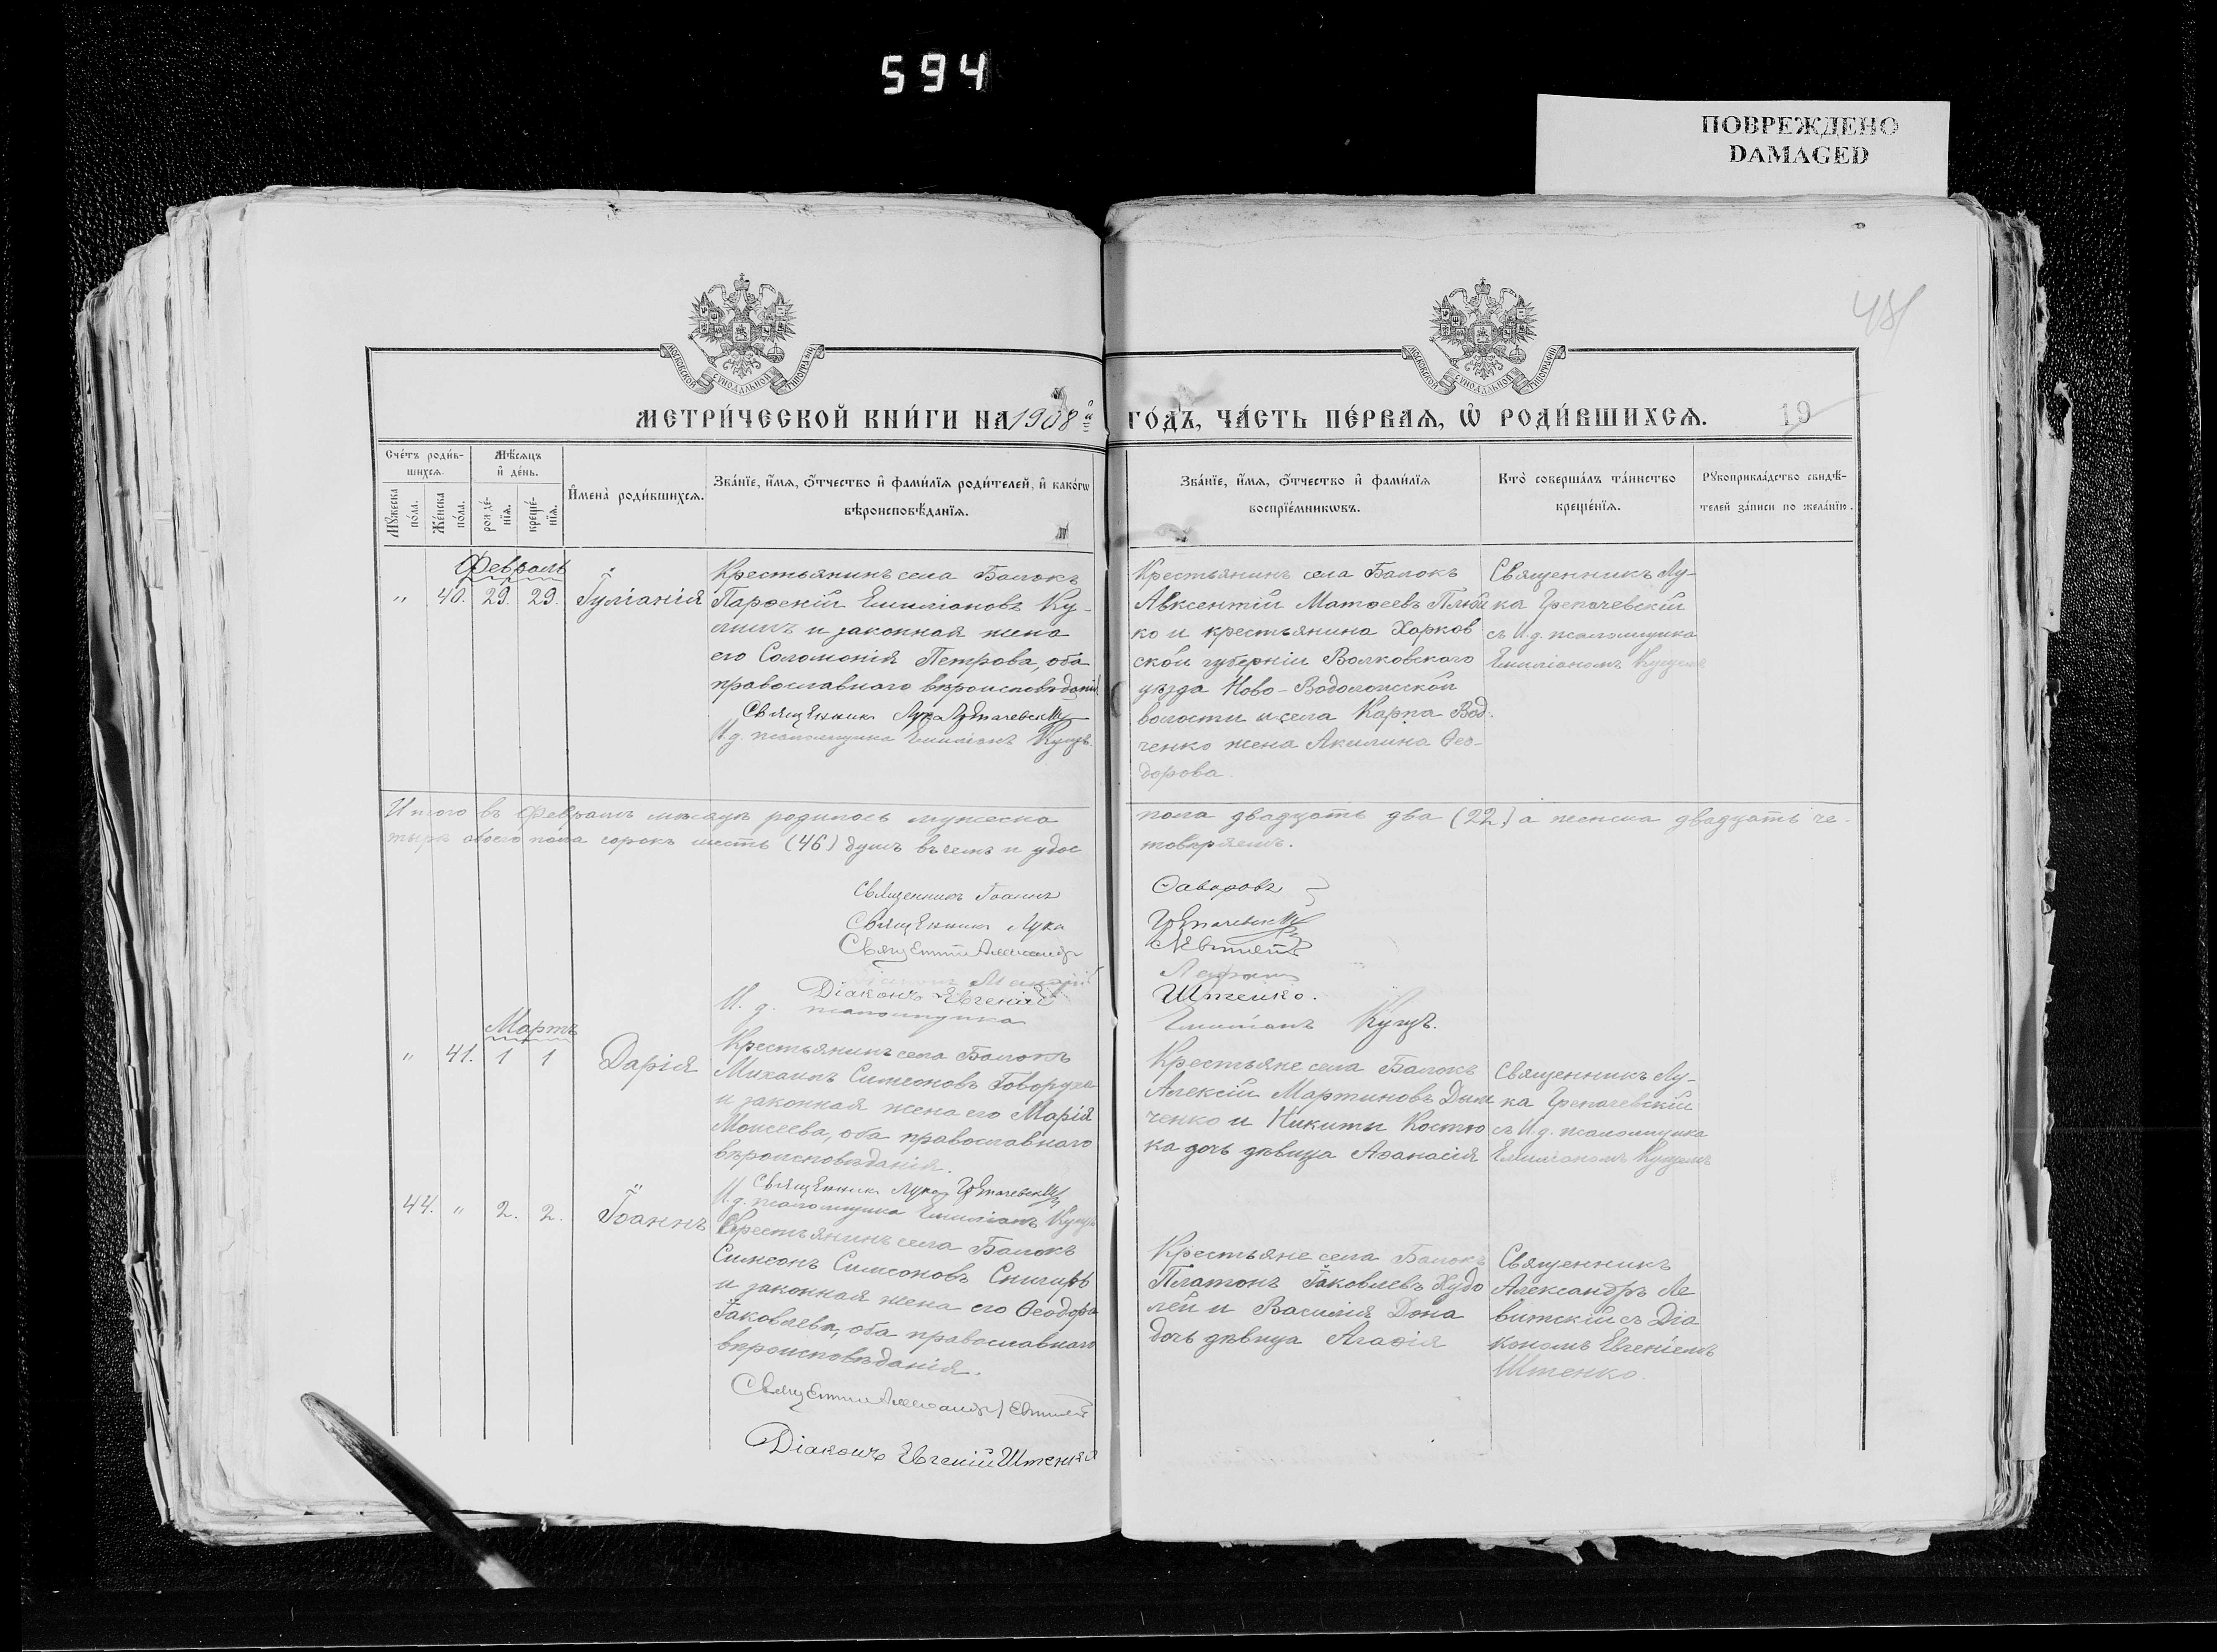 594
ПОВРЕЖДЕНО
DAMAGED
МОСКОВСКОЙ СѴНОДАЛЬНОЙ ТИПОГРАФІИ
МОСКОВСКОЙ СѴНОДАЛЬНОЙ ТИПОГРАФІИ
МЕТРИ́ЧЕСКОЙ КНИ́ГИ НА 1908й ГО́ДЪ, ЧА́СТЬ ПЕ́РВАѦ, Ѡ҆ РОДИ́ВШИХСѦ.
19
Сче́тъ роди́в-
шихсѧ.
Мꙋ́жеска по́ла.
Же́нска по́ла.
Мѣ́сѧцъ
и҆ де́нь.
рожде́-
нїѧ.
креще́-
нїѧ.
И҆мена̀ роди́вшихсѧ.
Зва́нїе, и҆́мѧ, ѻ҆́тчество и҆ фами́лїѧ роди́телей, и҆ како́гѡ
вѣроисповѣ́данїѧ.
Зва́нїе, и҆́мѧ, ѻ҆́тчество и҆ фами́лїѧ
воспрїе́мникѡвъ.
Кто̀ соверша́лъ та́инство
креще́нїѧ.
Рꙋкоприкла́дство свидѣ́-
телей за́писи по жела́нїю.
Февраль
" 40. 29. 29. Іуліанія
Крестьянинъ села Балокъ
Парѳеній Емиліановъ Ку-
и законная жена
его Соломонія Петрова, оба
православнаго вѣроисповѣданія
Священникъ Лука Грепачевскій
И.д. псаломщика Емиліанъ Кущъ.
Крестьянинъ села Балокъ
Авксентій Матѳеевъ
ко и крестьянина Харков
ской губерніи Волковскаго
уѣзда Ново-Водолажской
волости и села Карпа Вод-
ченко жена Акилина Ѳео-
дорова.
Священникъ Лу-
ка Грепачевскій
съ И.д. псаломщика
Емиліаномъ Кущемъ
Итого въ Февралѣ мѣсяцѣ родилось мужеска пола двадцать два (22) а женска двадцать че-
тыре обоего пола сорокъ шесть (46) душъ въ чемъ и удостовѣряемъ.
Священникъ Іоаннъ Ѳаворовъ
Священникъ Лука Грепачевскій
Священникъ Александръ Левитскій
Діаконъ Евгеній Штенко.
И. д. псаломщика Емиліанъ Кущъ.
Мартъ
" 41. 1 1 Дарія
Крестьянинъ села Балокъ
Михаилъ Симеоновъ Говоруха
и законная жена его Марія
Моисеева, оба православнаго
вѣроисповѣданія.
Священникъ Лука Грепачевскій
И.д. псаломщика Емиліанъ Кущъ
Крестьяне села Балокъ
Алексій Мартиновъ Дим
ченко и Никиты Костю
ка дочь дѣвица Аѳанасія
Священникъ Лу-
ка Грепачевскій
съ И.д. псаломщика
Емиліаномъ Кущемъ
44. " 2. 2. Іоаннъ
Крестьянинъ села Балокъ
Симеонъ Симеоновъ Снигирь
и законная жена его Ѳеодора
Іаковлева, оба православнаго
вѣроисповѣданія.
Священникъ Александръ Левитскій
Діаконъ Евгеній Штенко
Крестьяне села Балокъ
Платонъ Іаковлевъ Худо
лей и Василія Дона
дочь дѣвица Агаѳія
Священникъ
Александръ Ле
витскій съ Діа
кономъ Евгеніемъ
Штенко.